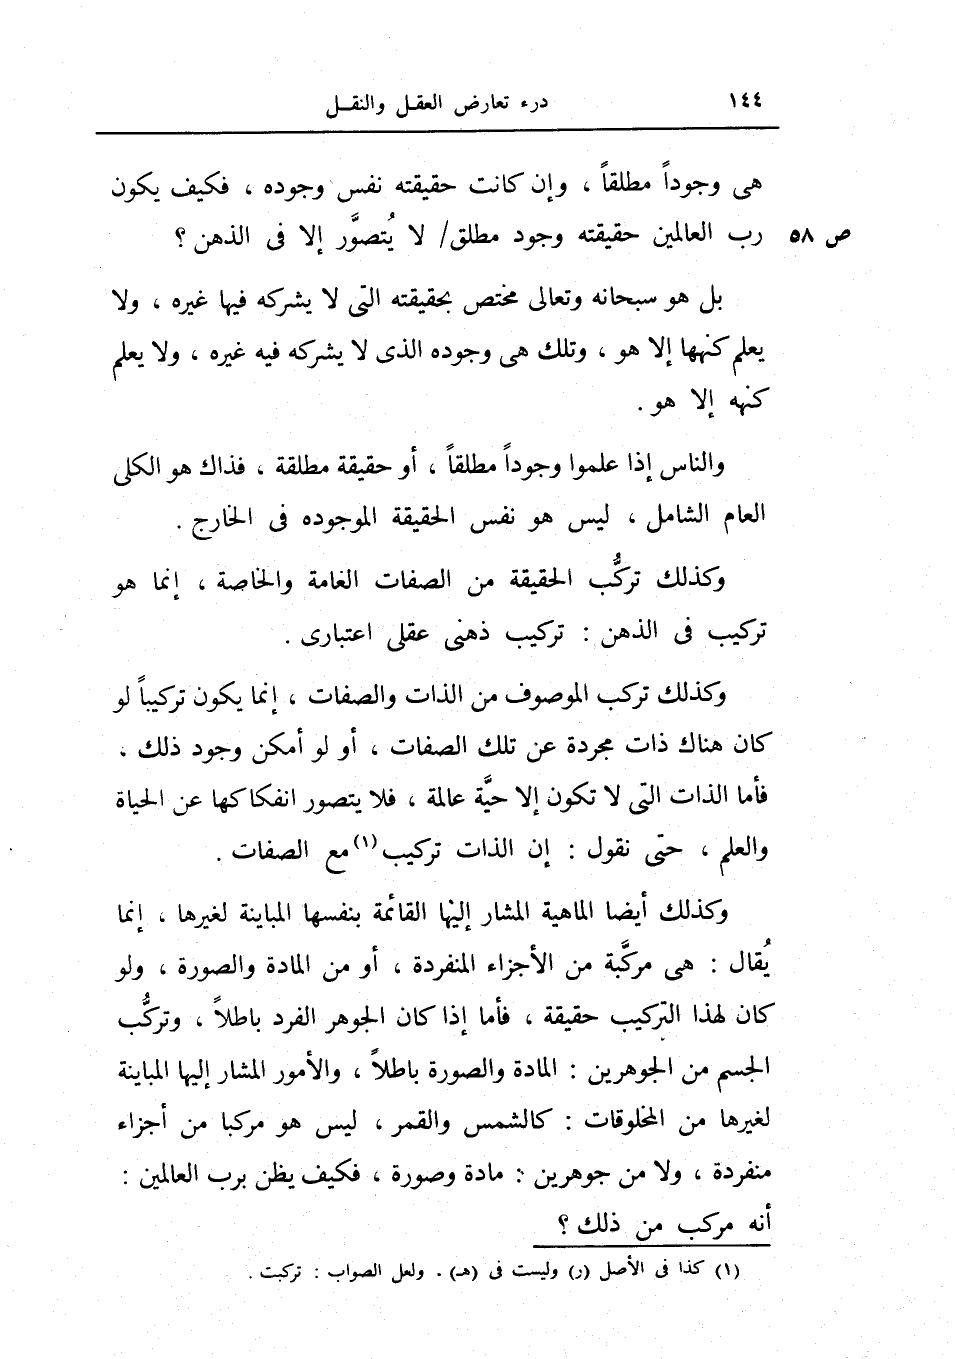 ١٤٤ درء تعارض العقل والنقل
هى وجوداً مطلقاً ، وإن كانت حقيقته نفس وجوده ، فكيف يكون
ص ٥٨ رب العالمين حقيقته وجود مطلق/ لا يُتصوَّر إلا فى الذهن ؟
بل هو سبحانه وتعالى مختص بحقيقته التى لا يشركه فيها غيره ، ولا
يعلم كنهها إلا هو ، وتلك هى وجوده الذى لا يشركه فيه غيره ، ولا يعلم
كنهه إلا هو .
والناس إذا علموا وجوداً مطلقاً ، أو حقيقة مطلقة ، فذاك هو الكلى
العام الشامل ، ليس هو نفس الحقيقة الموجوده فى الخارج .
وكذلك تركُّب الحقيقة من الصفات العامة والخاصة ، إنما هو
تركيب فى الذهن : تركيب ذهنى عقلى اعتبارى .
وكذلك تركب الموصوف من الذات والصفات ، إنما يكون تركيباً لو
كان هناك ذات مجردة عن تلك الصفات ، أو لو أمكن وجود ذلك ،
فأما الذات التى لا تكون إلا حيَّة عالمة ، فلا يتصور انفكاكها عن الحياة
والعلم ، حتى نقول : إن الذات تركيب(١) مع الصفات .
وكذلك أيضا الماهية المشار إليها القائمة بنفسها المباينة لغيرها ، إنما
يُقال : هى مركَّبة من الأجزاء المنفردة ، أو من المادة والصورة ، ولو
كان لهذا التركيب حقيقة ، فأما إذا كان الجوهر الفرد باطلاً ، وتركُّب
الجسم من الجوهرين : المادة والصورة باطلاً ، والأمور المشار إليها المباينة
لغيرها من المخلوقات : كالشمس والقمر ، ليس هو مركبا من أجزاء
منفردة ، ولا من جوهرين : مادة وصورة ، فكيف يظن برب العالمين :
أنه مركب من ذلك ؟
(١) كذا فى الأصل (ر) وليست فى (هـ) . ولعل الصواب : تركبت .